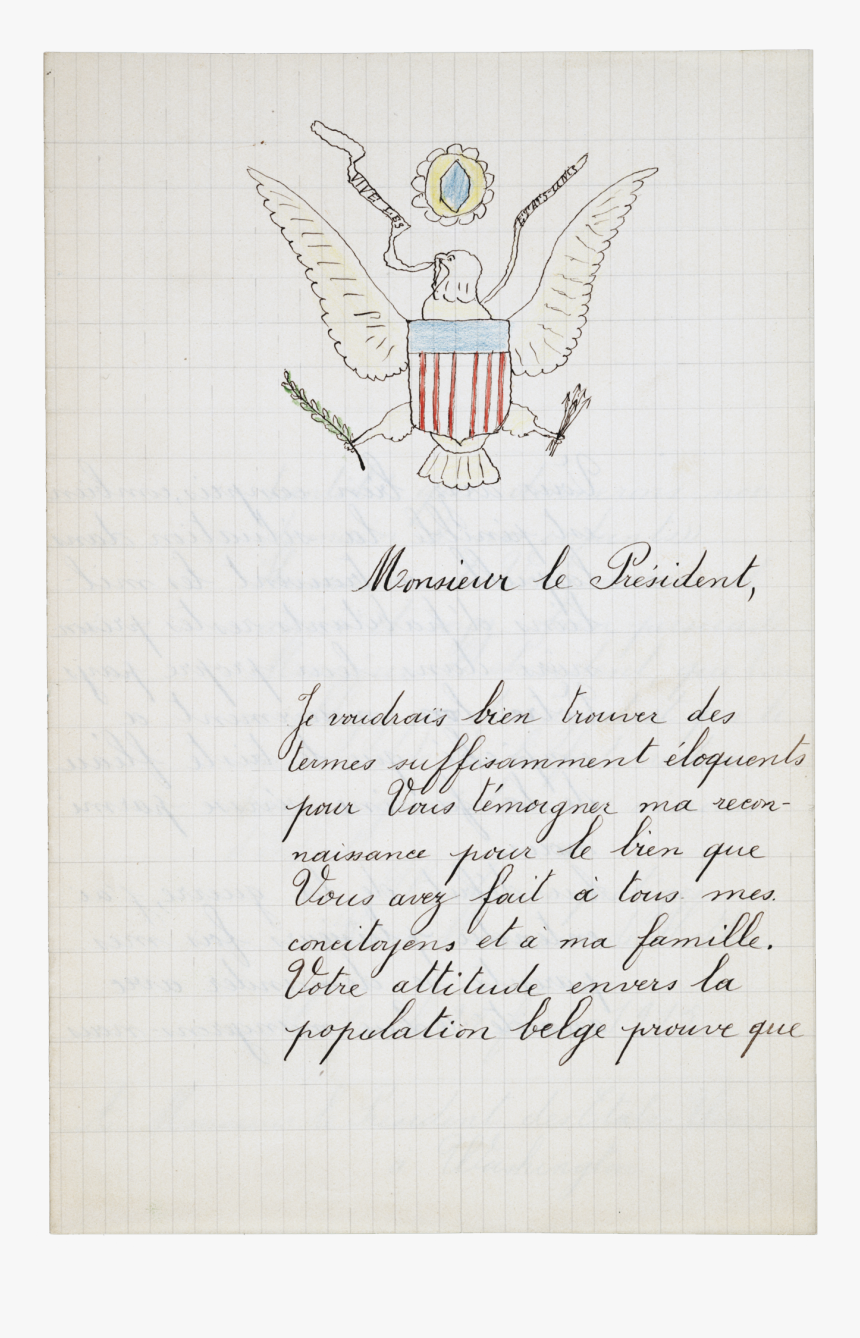 VIVE LES ÉTATS-UNIS
Monsieur le Président,
Je voudrais bien trouver des
termes suffisamment éloquents
pour Vous témoigner ma recon-
naissance pour le bien que
Vous avez fait à tous mes
concitoyens et à ma famille.
Votre attitude envers la
population belge prouve que